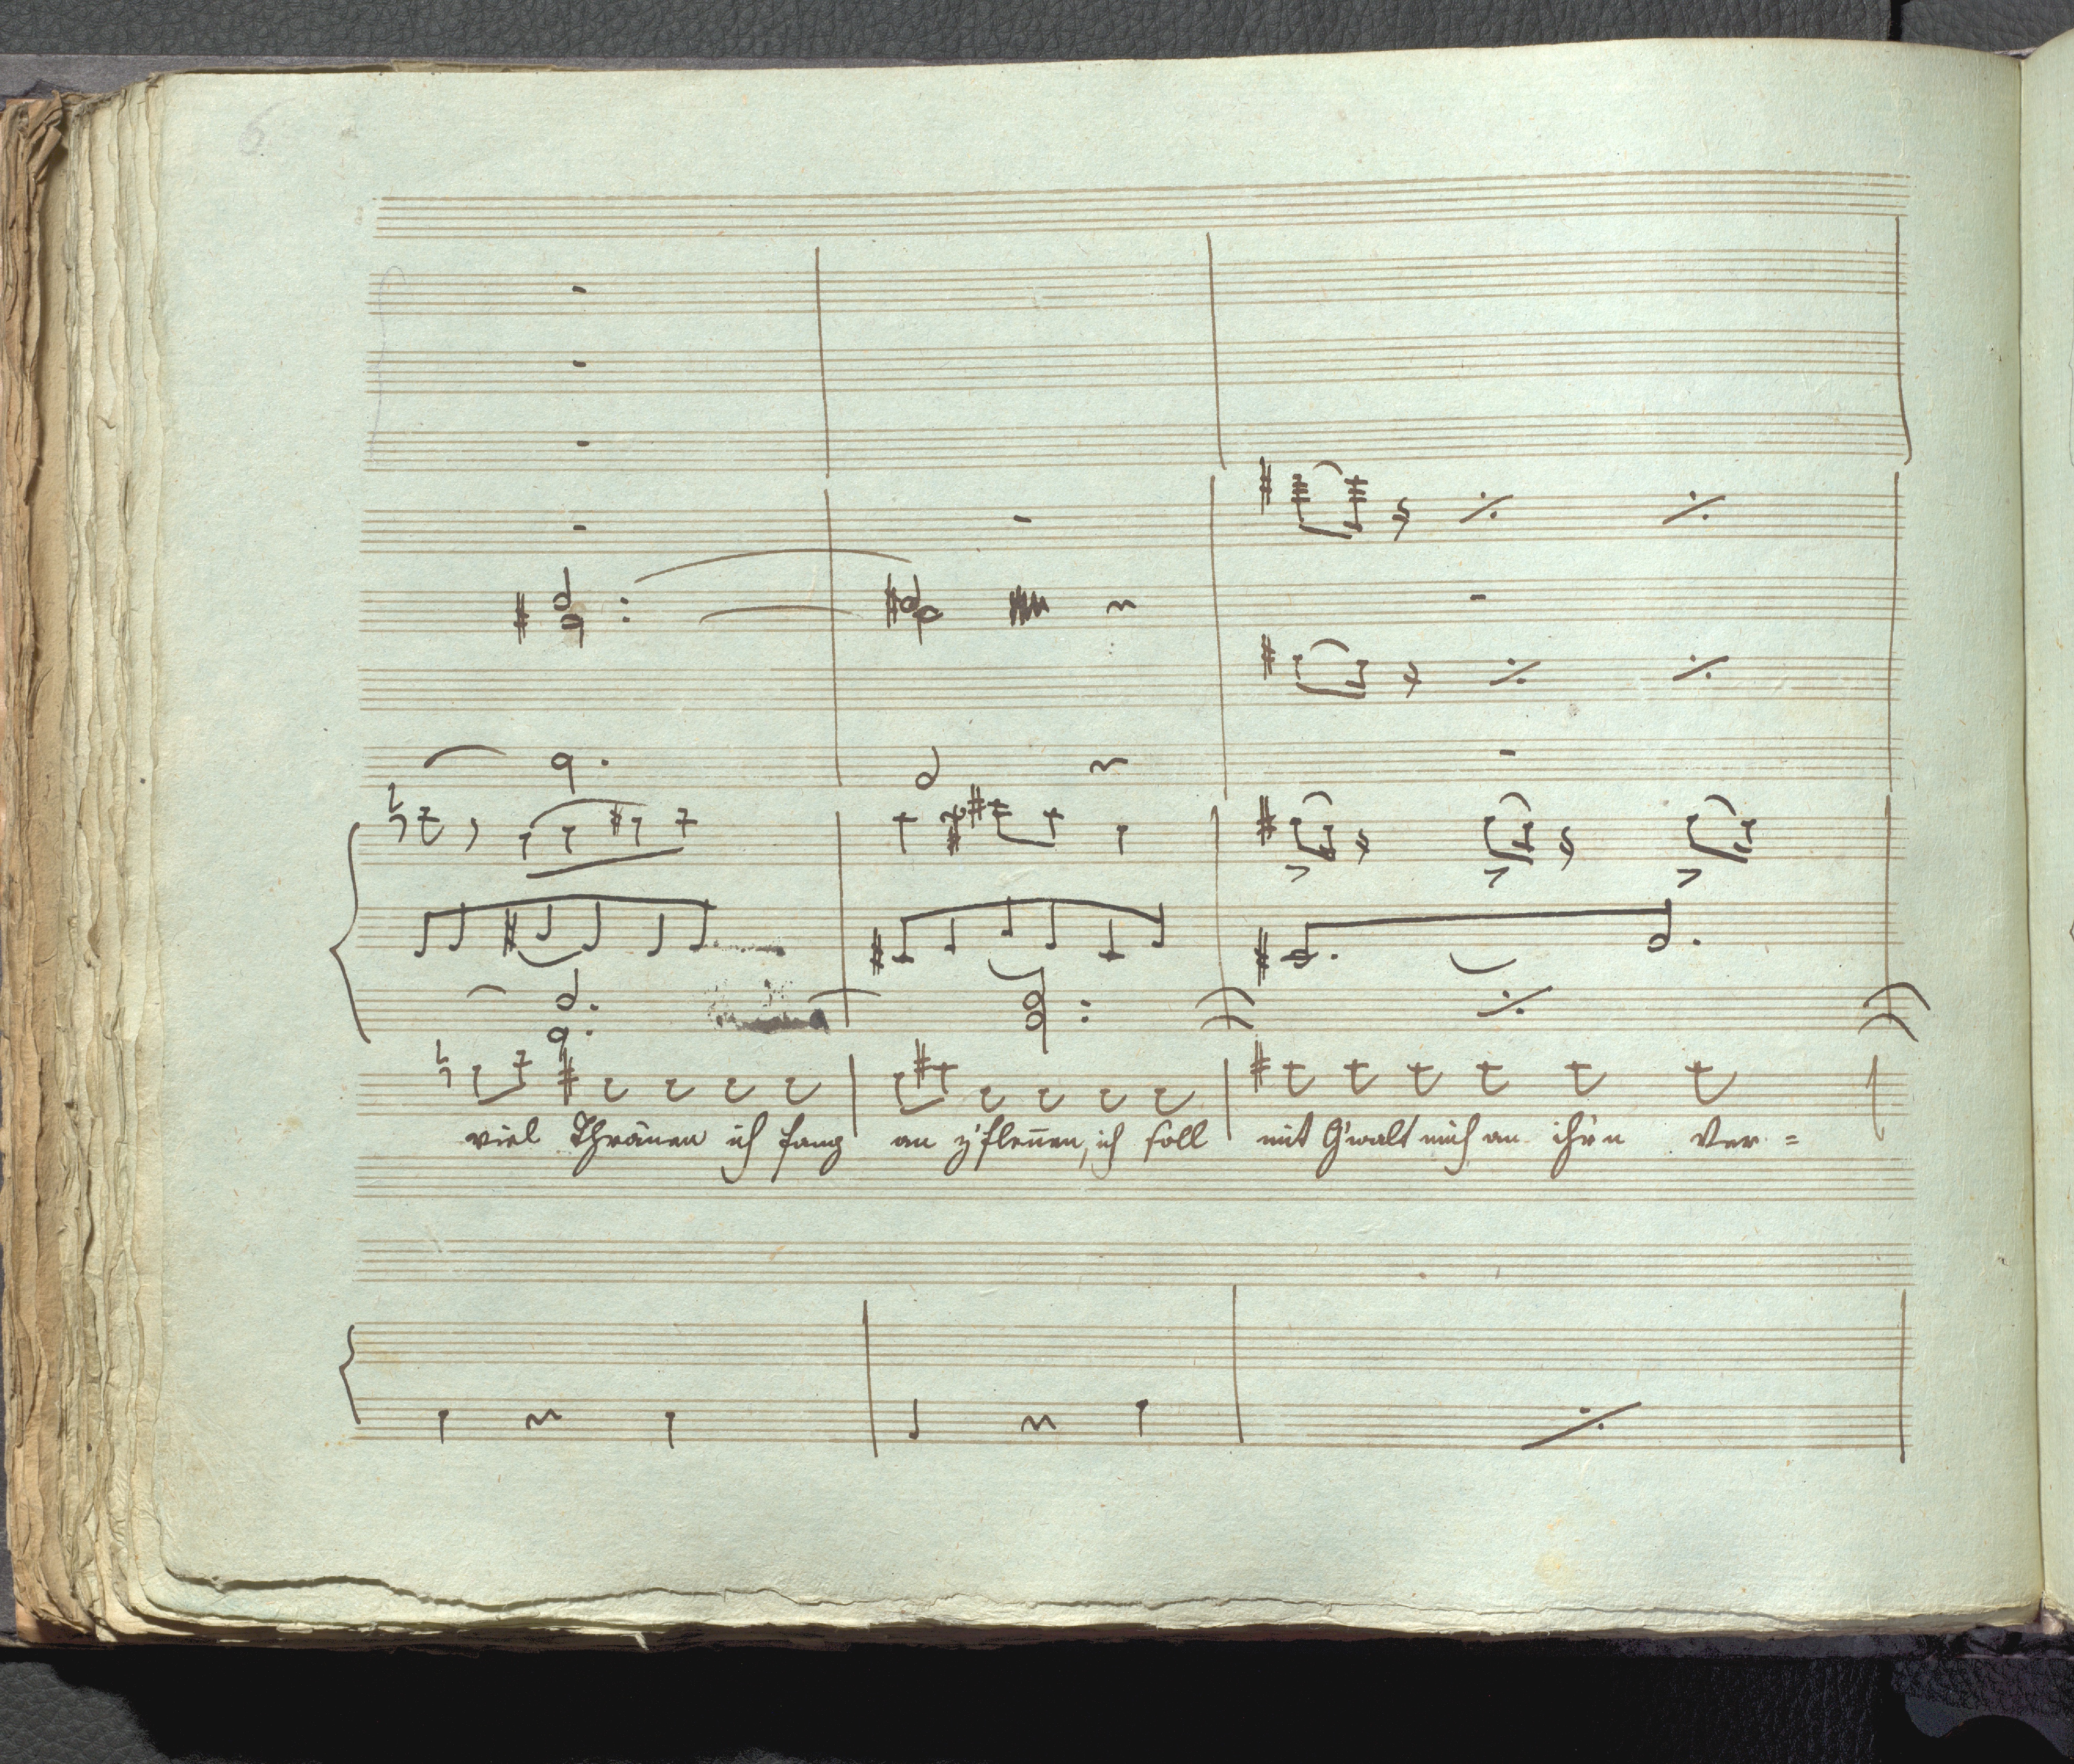 6
viel Thränen ich fang an z'flennen, ich soll mit G'walt mich an ihr'n Ver=